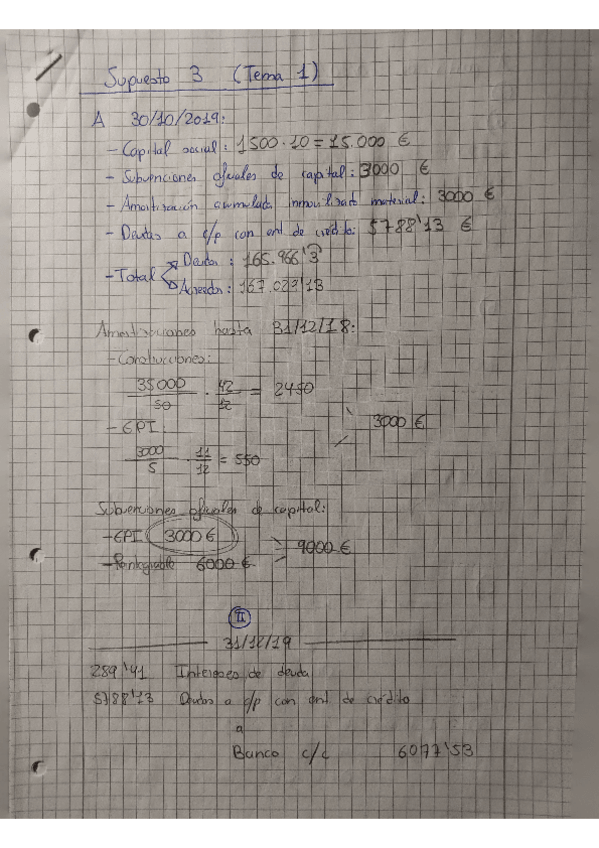 Supuesto 3 (Tema 1)
A 30/10/2019:
- Capital social: 1500·10 = 15.000 €
- Subvenciones oficiales de capital: 3000 €
- Amortización acumulada inmovilizado material: 3000 €
- Deudas a c/p con ent de crédito: 5788'13 €
- Total
Deudor: 165.966'3
Acreedor: 167.027'13
Amortizaciones hasta 31/12/18:
- Construcciones:
35000/50 · 42/12 = 2450
- EPI:
3000 €
3000/5 · 11/12 = 550
Subvenciones oficiales de capital:
- EPI 3000 €
9000 €
- Reintegrable 6000 €
II
31/12/19
289'41 Intereses de deuda
5788'13 Deudas a c/p con ent de crédito
a
Banco c/c 6077'53